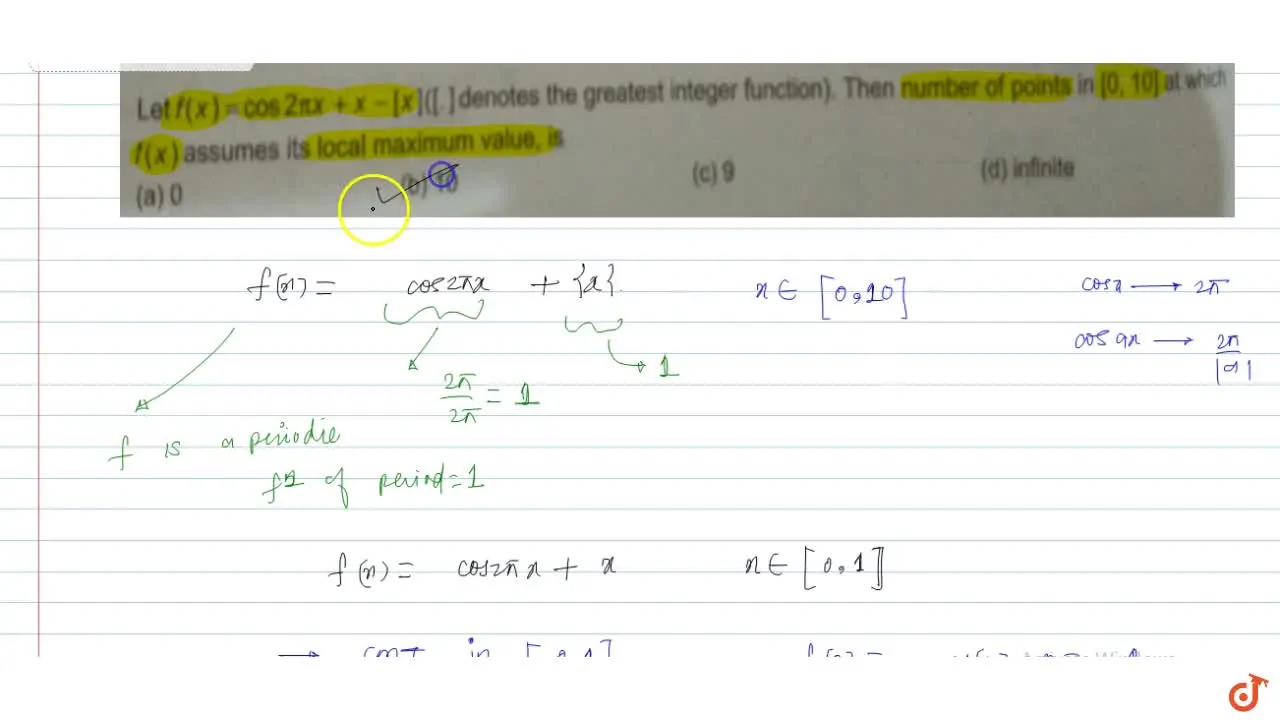 Let f(x) = cos 2πx + x – [x]([.] denotes the greatest integer function). Then number of points in [0, 10] at which
f(x) assumes its local maximum value, is
(a) 0 (b) 10 (c) 9 (d) infinite
f(x) = cos2πx + {x} x ∈ [0,10] cosx → 2π
cos ax → 2π/|a|
2π/2π = 1 1
f is a periodic
fn of period = 1
f(x) = cos2πx + x x ∈ [0,1]